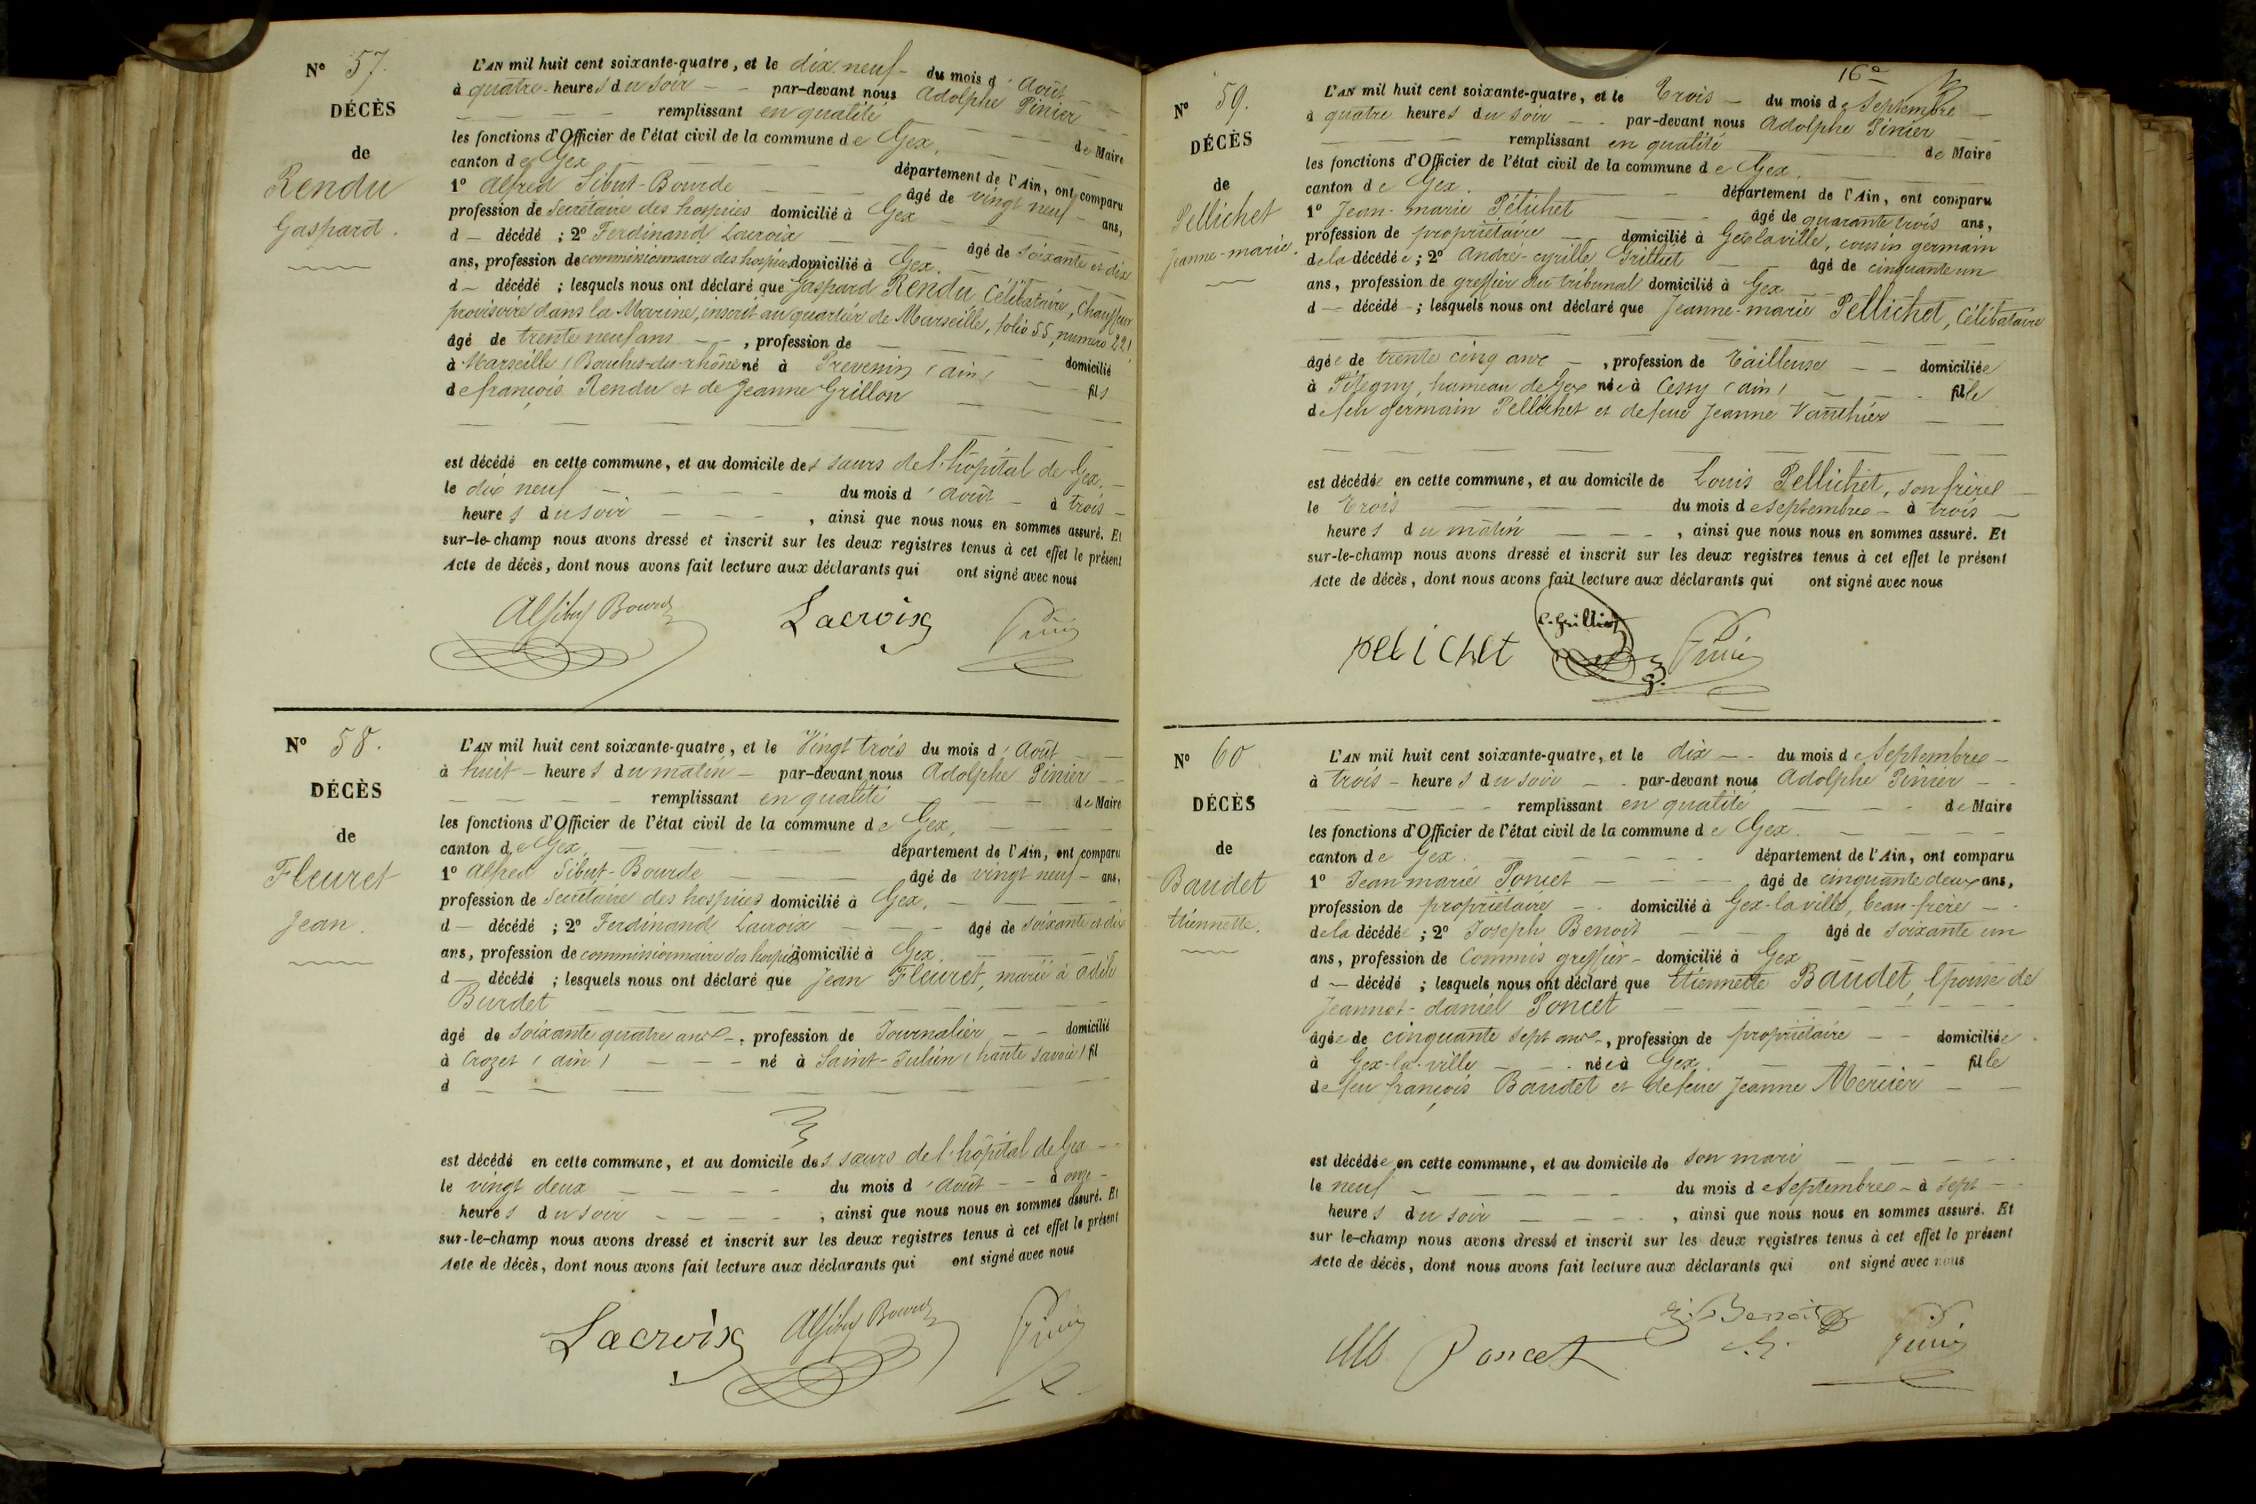 N° 57.
DÉCÈS
de
Rendu
Gaspard.
L'AN mil huit cent soixante-quatre, et le dix neuf du mois d'Août
à quatre heures du soir par-devant nous Adolphe Pinier
remplissant en qualité de Maire
les fonctions d'Officier de l'état civil de la commune de Gex,
canton de Gex département de l'Ain, ont comparu
1° Alfred Sibut-Bourde âgé de vingt neuf ans,
profession de Secrétaire des hospices domicilié à Gex
d décédé ; 2° Ferdinand Lacroix âgé de soixante et dix
ans, profession de commissionnaire des hospices domicilié à Gex.
d décédé ; lesquels nous ont déclaré que Gaspard Rendu, Célibataire, chauffeur
provisoire dans la Marine, inscrit au quartier de Marseille, folio 55, numéro 221
âgé de trente neuf ans , profession de domicilié
à Marseille (Bouches-du-rhône) né à Prevenin (ain) fils
de françois Rendu et de Jeanne Grillon
est décédé en cette commune, et au domicile des sœurs de l'hôpital de Gex.
le dix neuf du mois d'Août à trois
heures du soir , ainsi que nous nous en sommes assuré. Et
sur-le-champ nous avons dressé et inscrit sur les deux registres tenus à cet effet le présent
Acte de décès, dont nous avons fait lecture aux déclarants qui ont signé avec nous
Alf Sibut Bourde Lacroix Pinier
N° 58.
DÉCÈS
de
Fleuret
Jean.
L'AN mil huit cent soixante-quatre, et le Vingt trois du mois d'Août
à huit heures du matin par-devant nous Adolphe Pinier
remplissant en qualité de Maire
les fonctions d'Officier de l'état civil de la commune de Gex,
canton de Gex, département de l'Ain, ont comparu
1° Alfred Sibut-Bourde âgé de vingt neuf ans,
profession de Secrétaire des hospices domicilié à Gex.
d décédé ; 2° Ferdinand Lacroix âgé de soixante et dix
ans, profession de commissionnaire des hospices domicilié à Gex.
d décédé ; lesquels nous ont déclaré que Jean Fleuret, marié à Adèle
Burdet
âgé de soixante quatre ans , profession de Journalier domicilié
à Crozet (ain) né à Saint-Julien (haute savoie) fil
d
est décédé en cette commune, et au domicile des sœurs de l'hôpital de Gex
le vingt deux du mois d'Août à onze
heures du soir , ainsi que nous nous en sommes assuré. Et
sur-le-champ nous avons dressé et inscrit sur les deux registres tenus à cet effet le présent
Acte de décès, dont nous avons fait lecture aux déclarants qui ont signé avec nous
Lacroix Alf Sibut Bourde Pinier
16e
N° 59.
DÉCÈS
de
Pellichet
Jeanne-marie.
L'AN mil huit cent soixante-quatre, et le Trois du mois de Septembre
à quatre heures du soir par-devant nous Adolphe Pinier
remplissant en qualité de Maire
les fonctions d'Officier de l'état civil de la commune de Gex.
canton de Gex. département de l'Ain, ont comparu
1° Jean-marie Pélichet âgé de quarante trois ans,
profession de propriétaire domicilié à Gex la ville, cousin germain
de la décédée ; 2° André-cyrille Grilliet âgé de cinquante un
ans, profession de greffier du tribunal domicilié à Gex
d décédé ; lesquels nous ont déclaré que Jeanne-marie Pellichet, Célibataire
âgée de trente cinq ans , profession de Tailleuse domiciliée
à Pitegny, hameau de Gex née à Cessy (ain) fille
de feu germain Pellichet et de feue Jeanne Vauthier
est décédée en cette commune, et au domicile de Louis Pellichet, son frère
le Trois du mois de Septembre à trois
heures du matin , ainsi que nous nous en sommes assuré. Et
sur-le-champ nous avons dressé et inscrit sur les deux registres tenus à cet effet le présent
Acte de décès, dont nous avons fait lecture aux déclarants qui ont signé avec nous
pelichet C. Grilliet Pinier
N° 60
DÉCÈS
de
Baudet
Etiennette.
L'AN mil huit cent soixante-quatre, et le dix du mois de Septembre
à trois heures du soir par-devant nous Adolphe Pinier
remplissant en qualité de Maire
les fonctions d'Officier de l'état civil de la commune de Gex.
canton de Gex. département de l'Ain, ont comparu
1° Jean marie Poncet âgé de cinquante deux ans,
profession de propriétaire domicilié à Gex-la ville, beau-frère
de la décédée ; 2° Joseph Benoit âgé de soixante un
ans, profession de Commis greffier domicilié à Gex
d décédé ; lesquels nous ont déclaré que Etiennette Baudet, Epouse de
Jeannet-daniel Poncet
âgée de cinquante sept ans , profession de propriétaire domiciliée
à Gex-la-ville née à Gex. fille
de feu françois Baudet et de feue Jeanne Mercier
est décédée en cette commune, et au domicile de son mari
le neuf du mois de Septembre à sept
heures du soir , ainsi que nous nous en sommes assuré. Et
sur le-champ nous avons dressé et inscrit sur les deux registres tenus à cet effet le présent
Acte de décès, dont nous avons fait lecture aux déclarants qui ont signé avec nous
Poncet J. Benoit Pinier